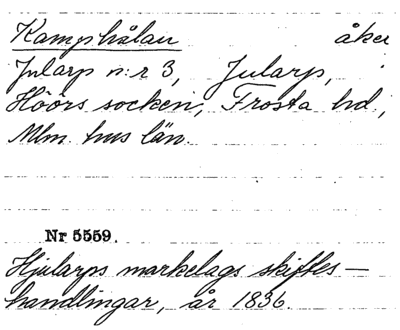 Kamphålan åker
Jularp n:r 3, Jularp,
Höörs socken, Frosta hd,
Mlm. hus län.
Nr 5559.
Hjularps markelags skiftes-
handlingar, år 1836.